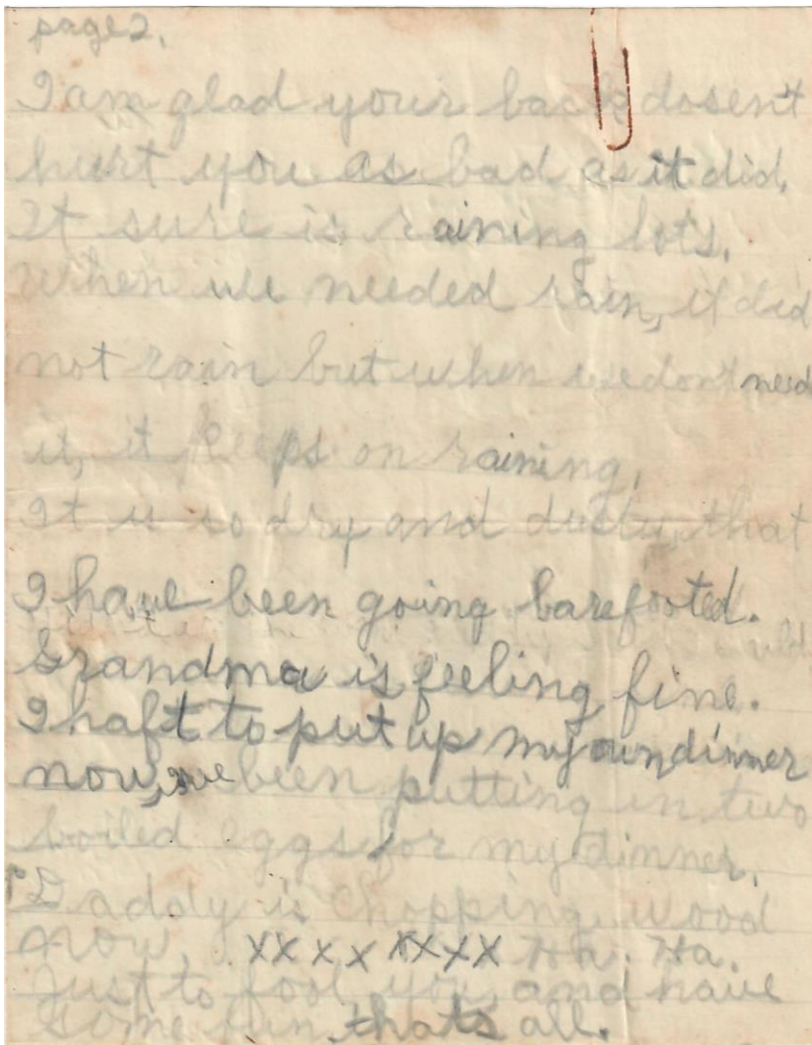 page 2.
I am glad your back dosent
hurt you as bad as it did.
It sure is raining lots.
When we needed rain, it did
not rain but when we dont need
it, it keeps on raining.
It is so dry and dusty, that
I have been going barefooted.
Grandma is feeling fine.
I haft to put up my own dinner
now, ive been putting in two
boiled eggs for my dinner.
Daddy is chopping wood
now. xxxx xxxx Ha. Ha.
Just to fool you, and have
some fun thats all.